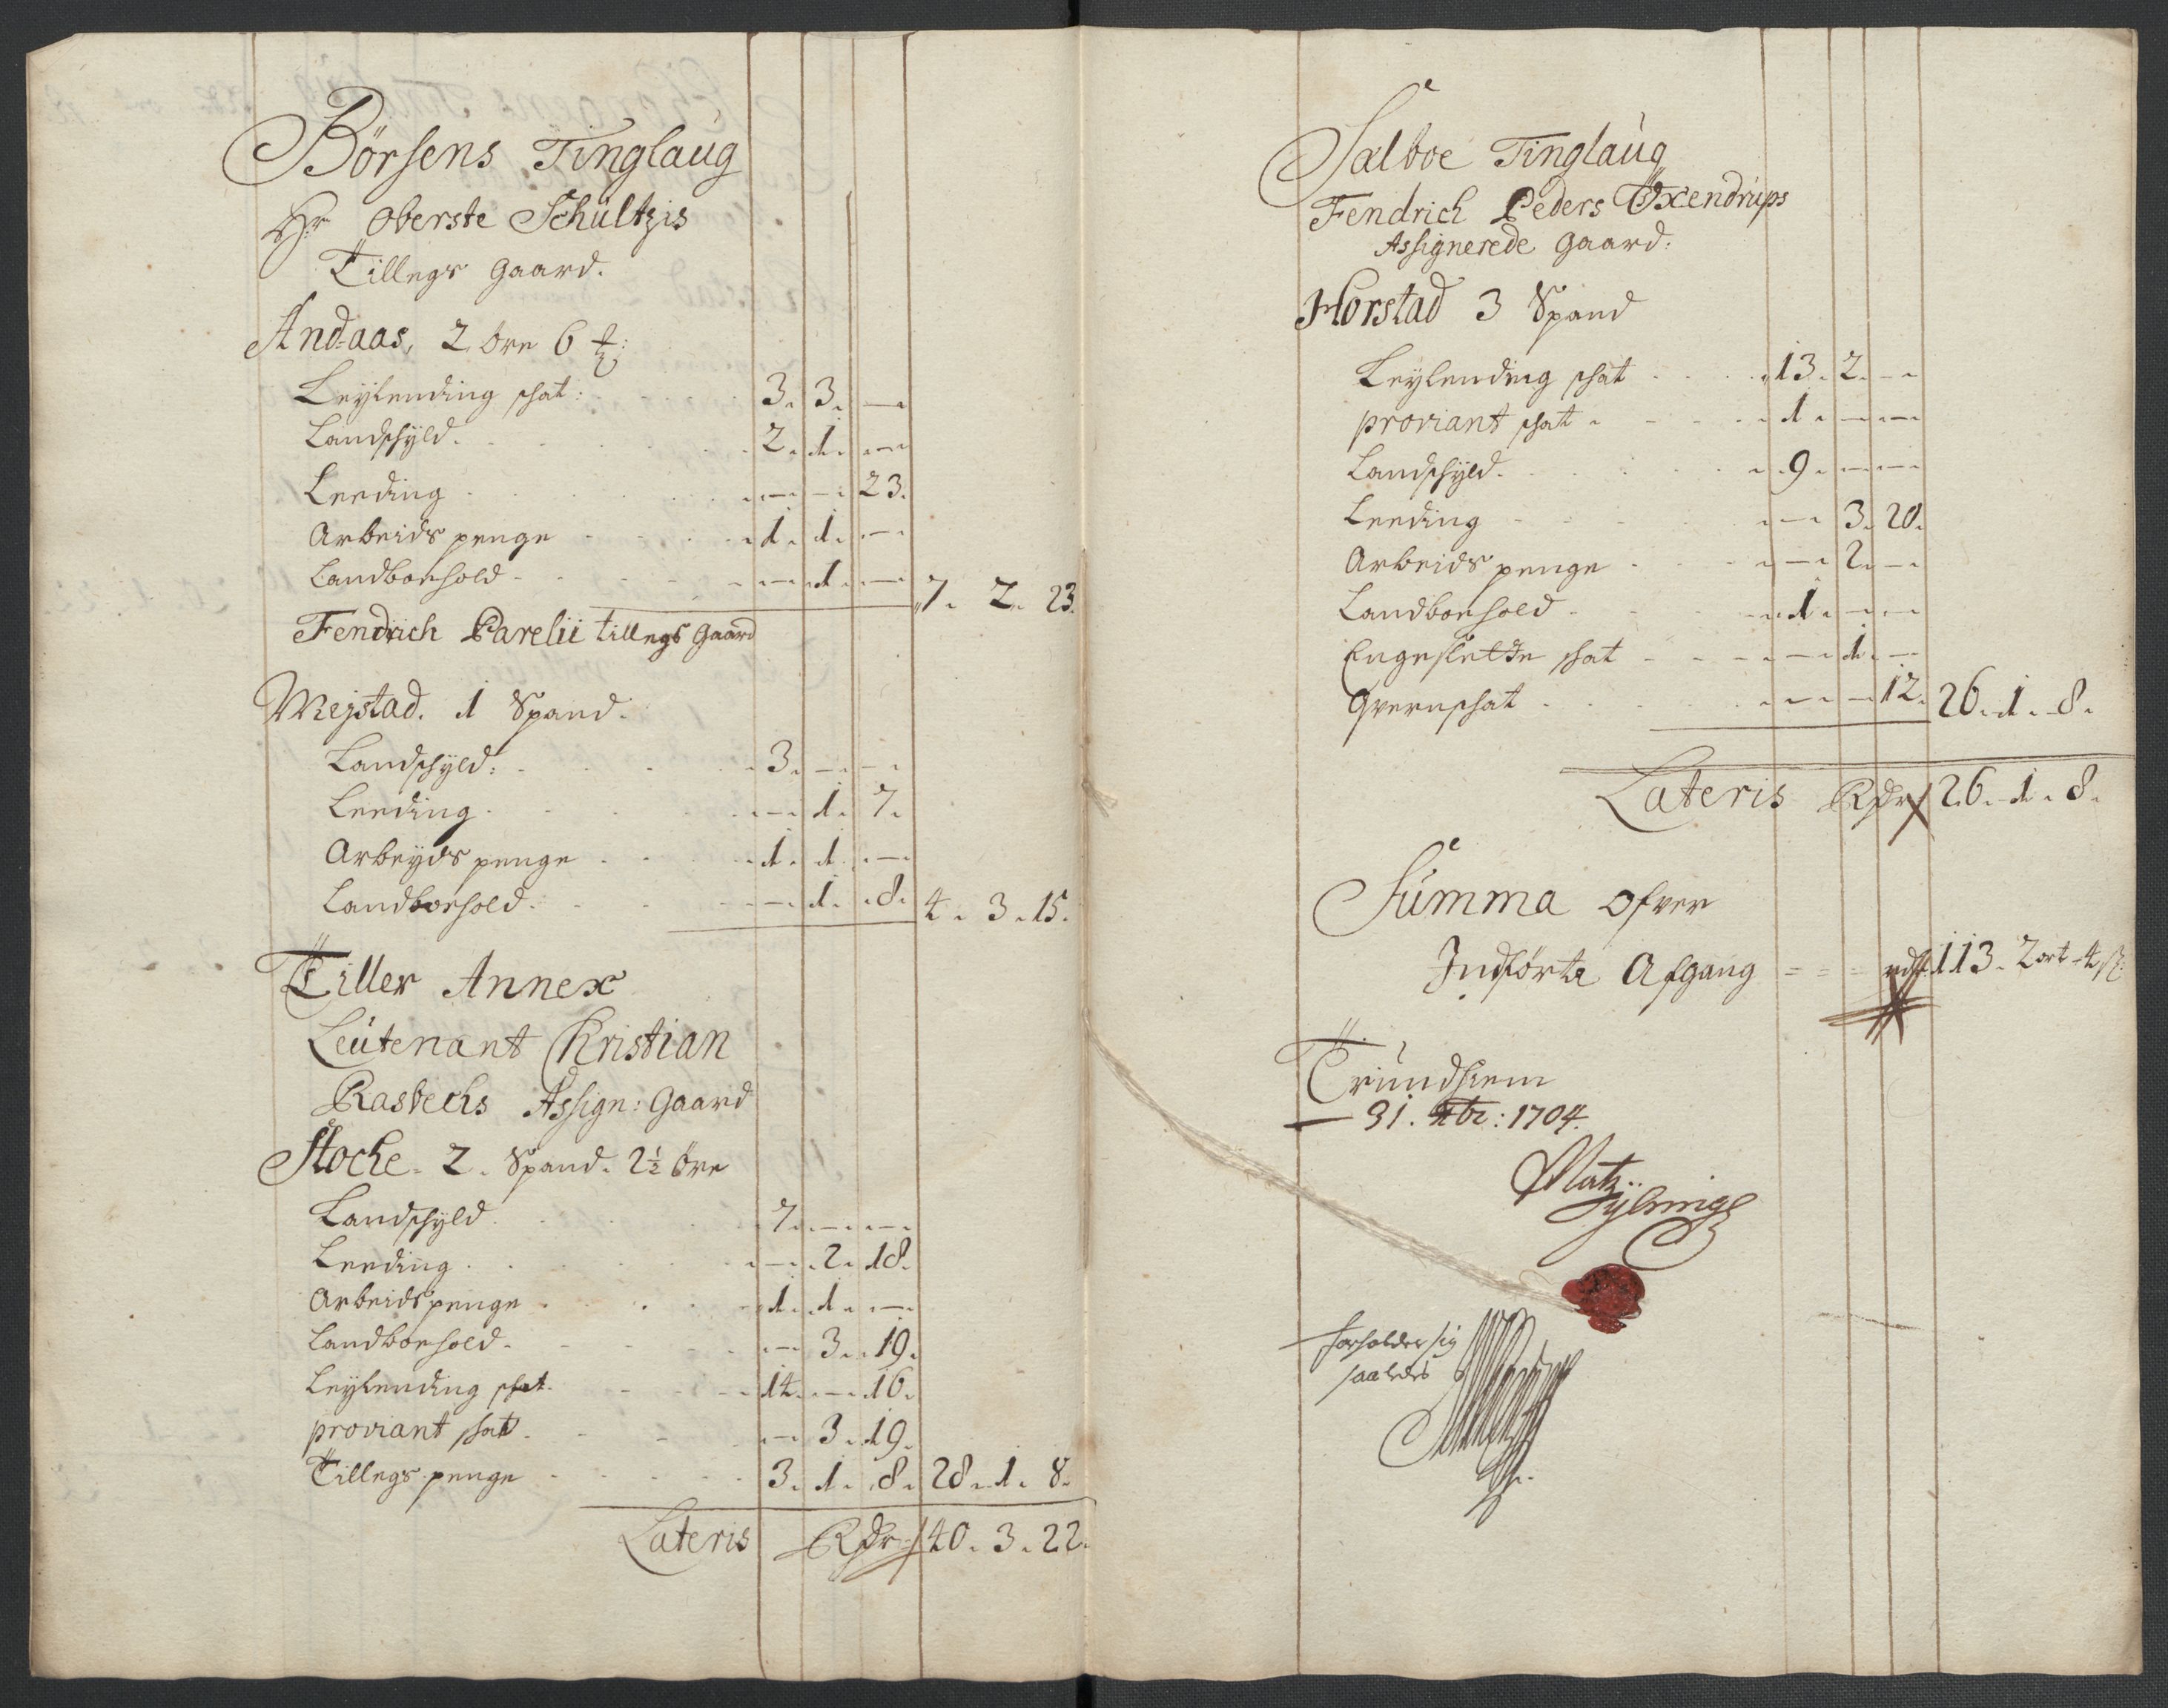 Börsens Tinglaug
Hr Oberste Schultzis
Tillegs Gaard.
And-aas, 2 öre 6
Leylending schat: 3. 3. —
Landschyld. 2. 1. —
Leeding — — 23.
Arbeids penge 1. 1. —
Landboehold — 1. — 7. 2. 23.
Fendrich Parelii tillegs Gaard
Mejstad. 1 Spand.
Landschyld: 3. — —
Leeding. — 1. 7.
Arbeyds penge 1. 1. —
Landboehold. — 1. 8. 4. 3. 15.
Tiller Annex
Leutenant Christian
Rasbechs Assign: Gaard
Stocke. 2. Spand. 2½ öre
Landschyld. 7. — —
Leeding. — 2. 18.
Arbeids penge. 1. 1. —
Landboehold. — 3. 19.
Leylending schat. 14. — 16.
proviant schat. — 3. 19.
Tillegs penge 3. 1. 8. 28. 1. 8.
Lateris Rdr 40. 3. 22.
Sælboe Tinglaug
Fendrich Peders Öxendrups
Assignerede Gaard:
Horstad 3 Spand
Leylending schat 13. 2. —
proviant schat 1. — —
Landschyld. 9. — —
Leeding — 3. 20.
Arbeids penge — 2. —
Landboehold 1. — —
Engeslette schat — 1. —
Qvernschat — — 12. 26. 1. 8.
Lateris Rdr 26. 1. 8.
Summa Ofver
Indførte Afgang = = = rdr 113. 2 ort 4 s
Trundhiem
31. Xbr: 1704.
forholder sig
saaledes